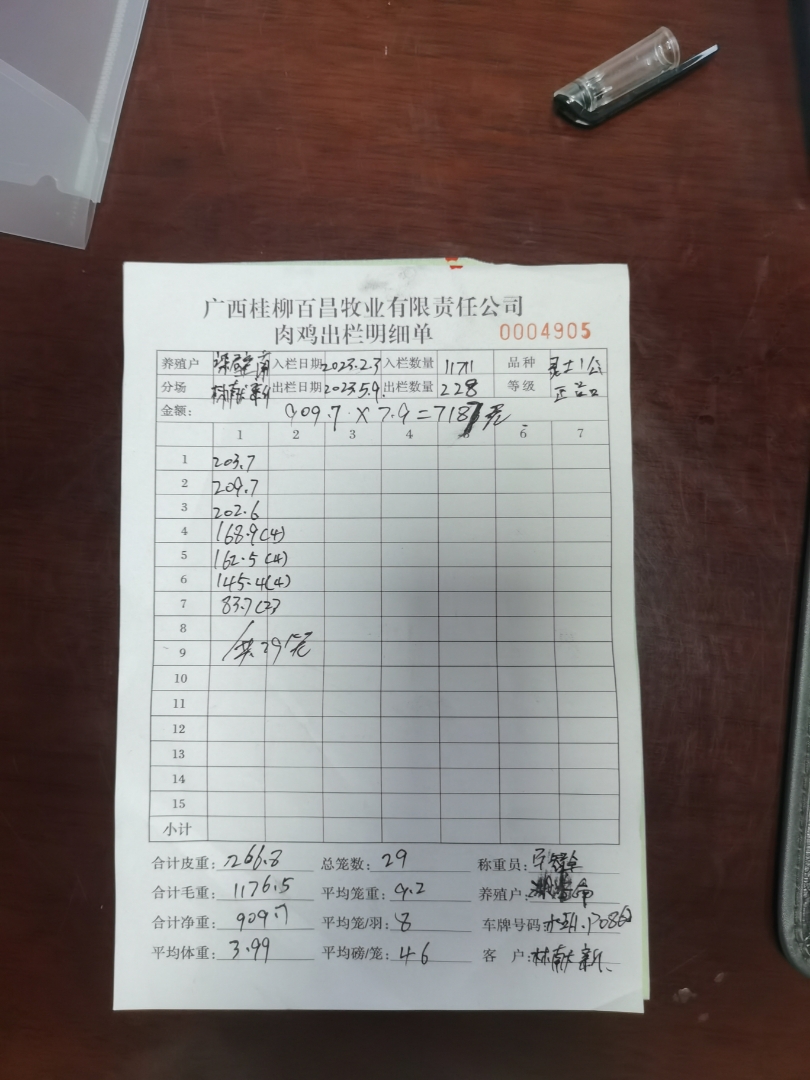 广西桂柳百昌牧业有限责任公司
肉鸡出栏明细单 0004905
养殖户 入栏日期 2023.2.3 入栏数量 1171 品种
分场 林献新 出栏日期 2023.5.9. 出栏数量 228 等级 正品
金额: 909.7 × 7.9 = 718 元
1 2 3 4 5 6 7
1 203.7
2 209.7
3 202.6
4 168.9(4)
5 162.5(4)
6 145.4(4)
7 83.7(2)
8
9 共29笼
10
11
12
13
14
15
小计
合计皮重: 266.8 总笼数: 29 称重员:
合计毛重: 1176.5 平均笼重: 9.2 养殖户:
合计净重: 909.7 平均笼/羽: 8 车牌号码:
平均体重: 3.99 平均磅/笼: 46 客户: 林献新